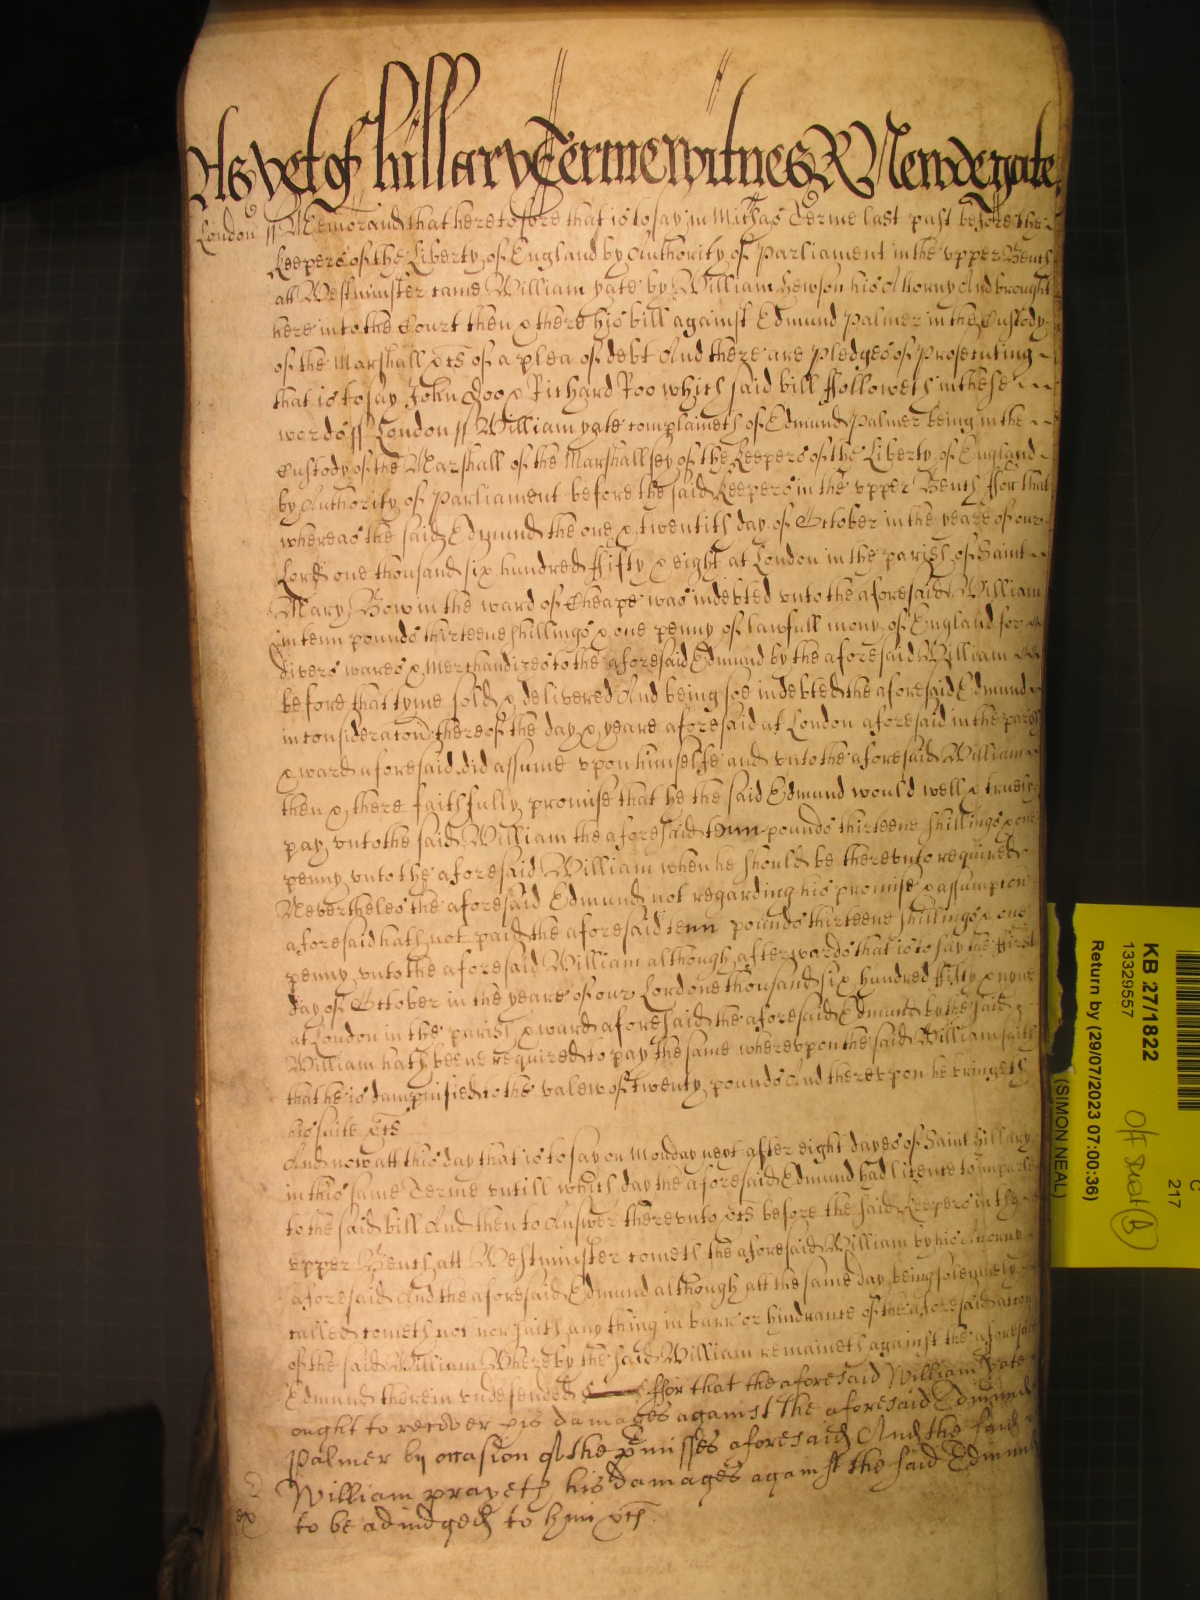 As yet of hillary Terme witnes R Newdegate
London ss Memorand that heretofore that is to say in Michas Terme last past before the
Keepers of the Liberty of England by Authority of Parliament in the vpper Bench
att Westminster came William yate by William Hewson his Attorny And brought
here into the Court then & there his bill against Edmund Palmer in the Custody
of the Marshall &ts of a plea of debt And there are pledges of prosecuting
that is to say John Doo & Richard Roo which said bill ffolloweth in these
words ss London ss William yate complaineth of Edmund Palmer being in the
Custody of the Marshall of the Marshallsey of the Keepers of the Liberty of England
by Authority of Parliament before the said Keepers in the vpper Bench ffor that
whereas the said Edmund the one & twentith day of October in the yeare of our
Lord one thousand six hundred ffifty & eight at London in the parish of Saint
Mary Bow in the ward of Cheape was indebted vnto the aforesaid William
in tenn pounds thirteene shillings & one penny of lawfull mony of England for
divers wares & Merchandizes to the aforesaid Edmund by the aforesaid William
before that tyme sold & delivered And being soe indebted the aforesaid Edmund
in consideracon thereof the day & yeare aforesaid at London aforesaid in the parish
& ward aforesaid did assume vpon himselfe and vnto the aforesaid William
then & there faithfully promise that he the said Edmund would well & truely
pay vnto the said William the aforesaid tenn pounds thirteene shillings & one
penny vnto the aforesaid William when he should be therevnto required
Nevertheles the aforesaid Edmund not regarding his promise & assumpcion
aforesaid hath not paid the aforesaid tenn pounds thirteene shillings & one
penny vnto the aforesaid William although afterwards that is to say the ffirst
day of October in the yeare of our Lord one thousand six hundred ffifty & nyne
at London in the parish & ward aforesaid the aforesaid Edmund by the said
William hath beene required to pay the same wherevpon the said William saith
that he is dampnified to the valew of twenty pounds And therevpon he bringeth
his suite &ts
And now att this day that is to say on Monday next after eight dayes of Saint Hillary
in this same Terme vntill which day the aforesaid Edmund had licence to imparle
to the said bill And then to Answer therevnto &ts before the said Keepers in the
vpper Bench att Westminster cometh the aforesaid William by his Attorny
aforesaid And the aforesaid Edmund although att the same day being solemnely
called cometh not nor saith any thing in barr or hindrance of the aforesaid accon
of the said William Whereby the said William remaineth against the aforesaid
Edmund therein vndefended ffor that the aforesaid William Yate
ought to recover his damages against the aforesaid Edmund
Palmer by occasion of the p'misses aforesaid And the said
William prayeth his damages against the said Edmund
to be adiudged to him &ts
KB 27/1822
13329557
Return by (29/07/2023 07:00:36)
(SIMON NEAL)
C
217